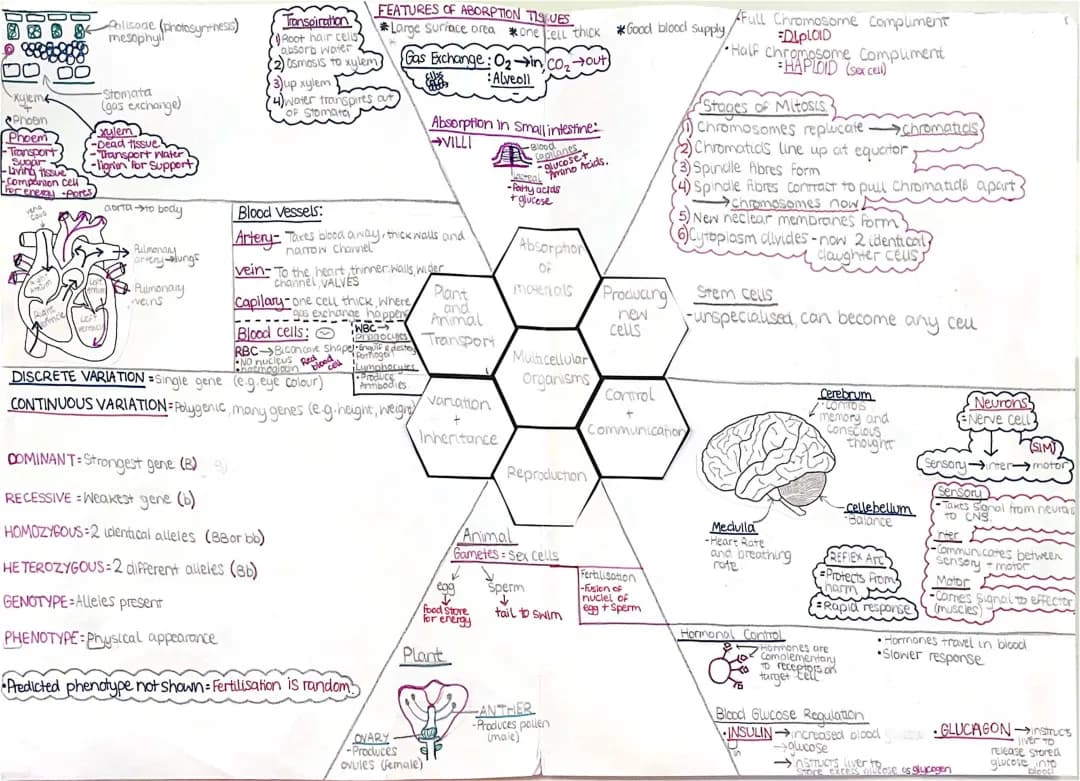 Palisade (photosynthesis)
mesophyll
Stomata
(gas exchange)
xylem
+
Phloem
Phoem
- Transport
Sugar
- Living tissue
- Companion cell
for energy - Pores
xylem
- Dead tissue
- Transport water
- lignin for Support
Transpiration
1) Root hair cells
absorb water
2) Osmosis to xylem
3) up xylem
4) water transpires out
of stomata
FEATURES OF ABORPTION TISSUES
* Large surface area * one cell thick * Good blood supply
Gas Exchange: O2 → in, CO2 → out
: Alveoli
Absorption in Small intestine:
→ VILLI
- Blood
capillaries
- glucose +
Amino Acids.
lacteal
- Fatty acids
+ glucose
• Full Chromosome Compliment
= DIPLOID
• Half Chromosome Compliment
= HAPLOID (sex cell)
Stages of Mitosis
1) Chromosomes replucate → chromatids
2) Chromatids line up at equator
3) Spindle fibres form
4) Spindle fibres contract to pull chromatids apart
→ chromosomes now
5) New neclear membranes form
6) Cytoplasm divides - now 2 identical
daughter cells
Stem cells
- unspecialised, can become any cell
vena
cava
aorta → to body
Pulmonary
artery → lungs
Pulmonary
veins
Right
atrium
left
atrium
Right
ventricle
Left
ventricle
Blood Vessels:
Artery - Takes blood away, thick walls and
narrow channel
vein - To the heart, thinner walls, wider
channel, VALVES
Capillary - one cell thick, where
gas exchange happens
Blood cells:
RBC → Biconcave shape
• No nucleus
• haemoglobin
Red
blood
cell
WBC →
Phagocytes
- Engulf & destroy
Pathogen
Lymphocytes
- Produce
Antibodies.
Absorption
of
materials
Plant
and
Animal
Transport
Producing
new
cells
Multicellular
Organisms
Variation
+
Inheritance
Control
+
Communication
Reproduction
DISCRETE VARIATION = Single gene (e.g. eye colour)
CONTINUOUS VARIATION = Polygenic, many genes (e.g. height, weight)
DOMINANT = Strongest gene (B)
RECESSIVE = Weakest gene (b)
HOMOZYGOUS = 2 identical alleles (BB or bb)
HETEROZYGOUS = 2 different alleles (Bb)
GENOTYPE = Alleles present
PHENOTYPE = Physical appearance
• Predicted phenotype not shown = Fertilisation is random.
Animal
Gametes = Sex cells
egg
sperm
food store
for energy
tail to swim
Fertilisation
- fusion of
nuclei of
egg + sperm
Plant
ANTHER
- Produces pollen
(male)
OVARY
- Produces
ovules (female)
Cerebrum
- Controls
memory and
conscious
thought
cellebellum
- Balance
Medulla
- Heart Rate
and breathing
rate
Neurons
= Nerve cell
(SIM)
Sensory → inter → motor
Sensory
- Takes signal from
to CNS.
Inter
- Communicates between
sensory + motor
Motor
- Carries signal to EFFECTOR
(muscles)
REFLEX ARC
= Protects from
harm
= Rapid response
Hormonal Control
Hormones are
complementary
to receptors on
target cell
• Hormones travel in blood
• Slower response
Blood Glucose Regulation
• INSULIN → increased blood
→ glucose
→ instructs liver to
store excess glucose as glycogen
• GLUCAGON → instructs
liver to
release stored
glucose into
blood